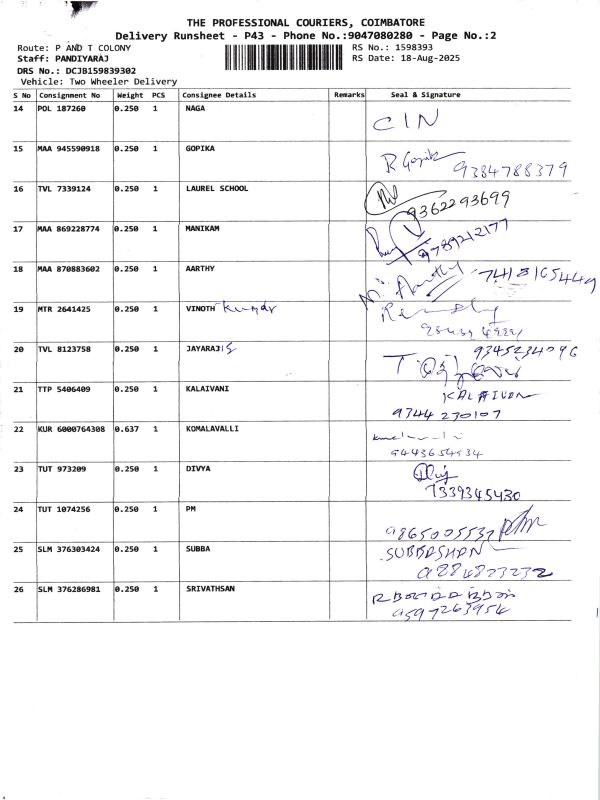 THE PROFESSIONAL COURIERS, COIMBATORE
Delivery Runsheet - P43 - Phone No.:9047080280 - Page No.:2
Route: P AND T COLONY
RS No.: 1598393
Staff: PANDIYARAJ
RS Date: 18-Aug-2025
DRS No.: DCJB159839302
Vehicle: Two Wheeler Delivery
S No Consignment No Weight PCS Consignee Details Remarks Seal & Signature
14 POL 187260 0.250 1 NAGA
CIN
15 MAA 945590918 0.250 1 GOPIKA
R. Gopik
9384788379
16 TVL 7339124 0.250 1 LAUREL SCHOOL
9362293699
17 MAA 869228774 0.250 1 MANIKAM
9789212177
18 MAA 870883602 0.250 1 AARTHY
M. Aarthy 7418165449
19 MTR 2641425 0.250 1 VINOTH kumar
20 TVL 8123758 0.250 1 JAYARAJ
9345234096
21 TTP 5406409 0.250 1 KALAIVANI
KALAIVANI
9344230107
22 KUR 6000764308 0.637 1 KOMALAVALLI
9443654934
23 TUT 973209 0.250 1 DIVYA
7339345430
24 TUT 1074256 0.250 1 PM
9865005537
25 SLM 376303424 0.250 1 SUBBA
SUBBASHAN
9884823232
26 SLM 376286981 0.250 1 SRIVATHSAN
9597263954